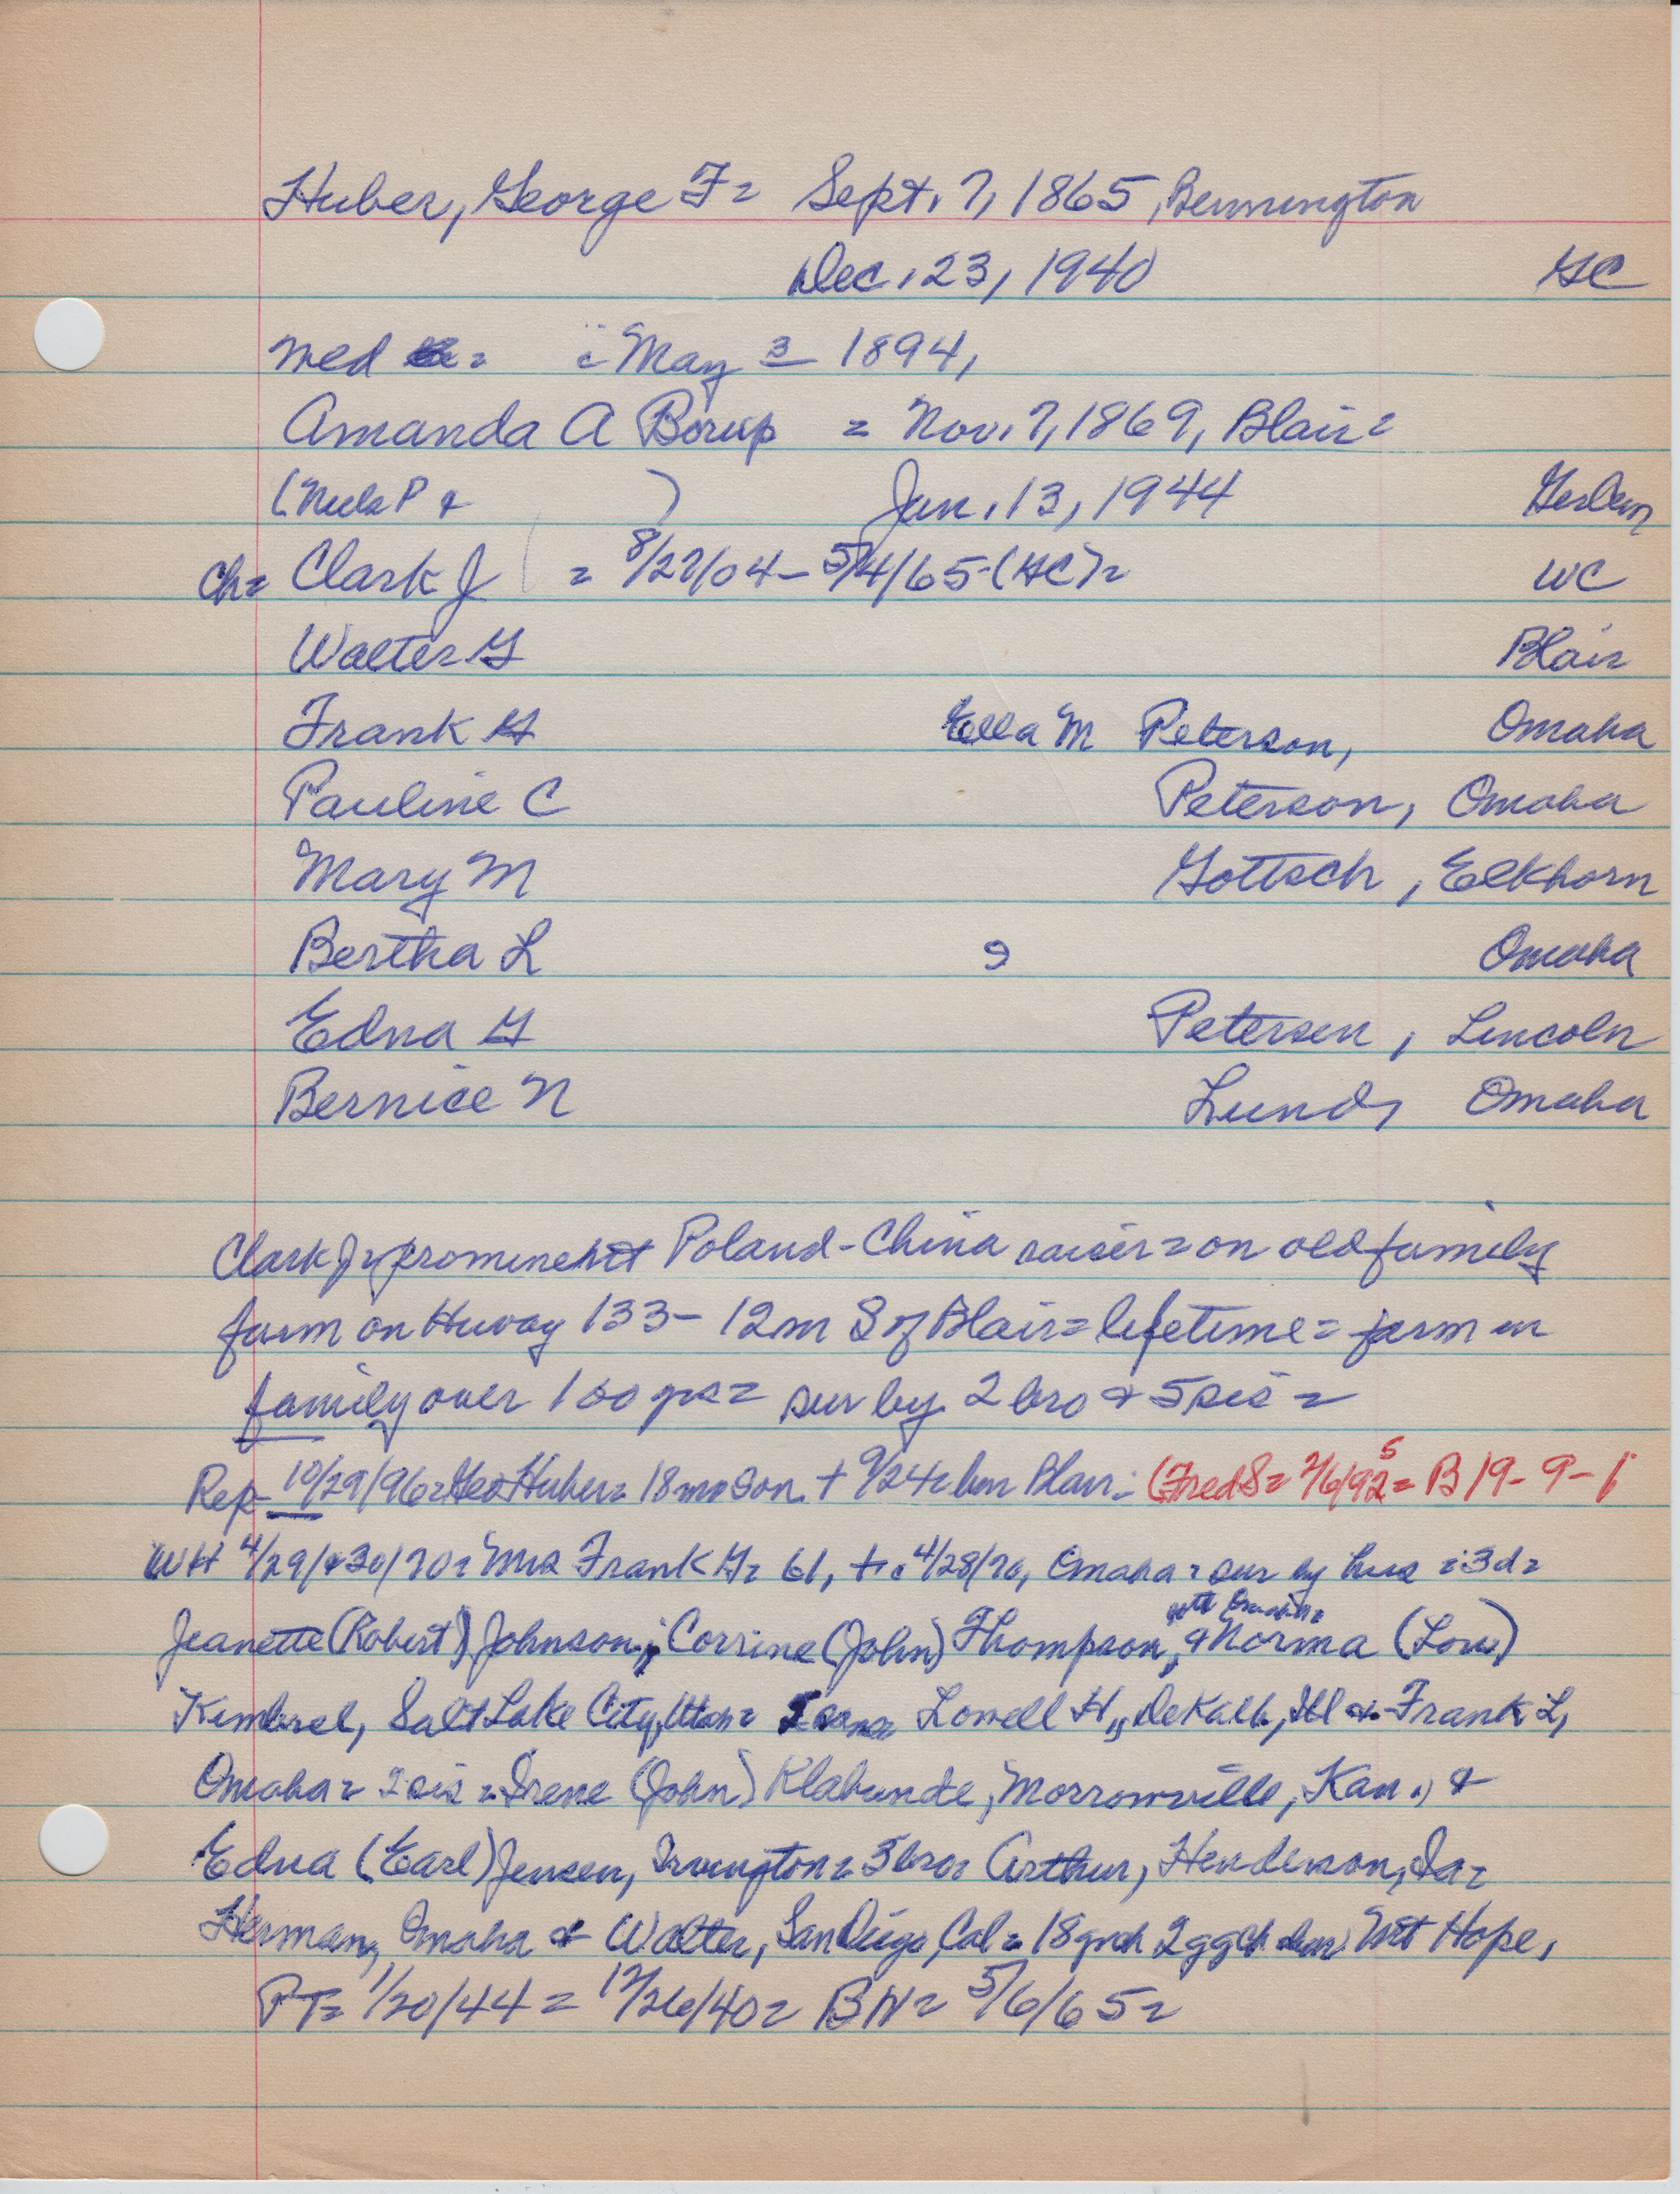 Huber, George F = Sept. 7, 1865, Bennington
Dec. 23, 1940 GC
med = May 3 1894,
Amanda A Borup = Nov. 7, 1869, Blair =
(Nels P + ) Jan. 13, 1944
ch= Clark J = 8/27/04 - 5/4/65 - (GC) = WC
Walter G Blair
Frank G Ella M Peterson, Omaha
Pauline C Peterson, Omaha
Mary M Gottsch, Elkhorn
Bertha L 9 Omaha
Edna G Petersen, Lincoln
Bernice N Lund, Omaha
Clark J, prominent Poland-China raiser = on old family
farm on Huway 133 - 12m S of Blair = lifetime = farm in
family over 100 yrs = sur by 2 bro & 5 sis =
Rep - 10/29/96 = Geo Huber = 18 mo son + 9/24 = bur Blair - (Fred S = 2/6/92 5 = B 19-9-1
WH 4/29/&30/70 = Mrs Frank G = 61, + 4/28/70, Omaha = sur by hus = 3d =
Jeanette (Robert) Johnson, Corrine (John) Thompson, both Omaha = & Norma (Lou)
Kimbrel, Salt Lake City, Utah = Lowell H,, DeKalb, Ill & Frank L,
Omaha = 2 sis = Irene (John) Klabunde, Morrowville, Kan., &
Edna (Earl) Jensen, Irvington = 3 bro = Arthur, Henderson, Ia =
Herman, Omaha & Walter, San Diego, Cal = 18 grch 2 ggch Mt Hope,
PT = 1/20/44 = 12/26/40 = BN = 5/6/65 =